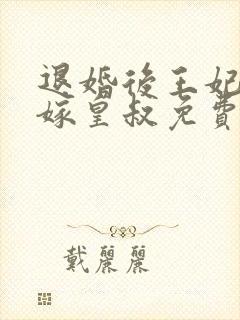 退婚後王妃
嫁皇叔免費
戴麗麗